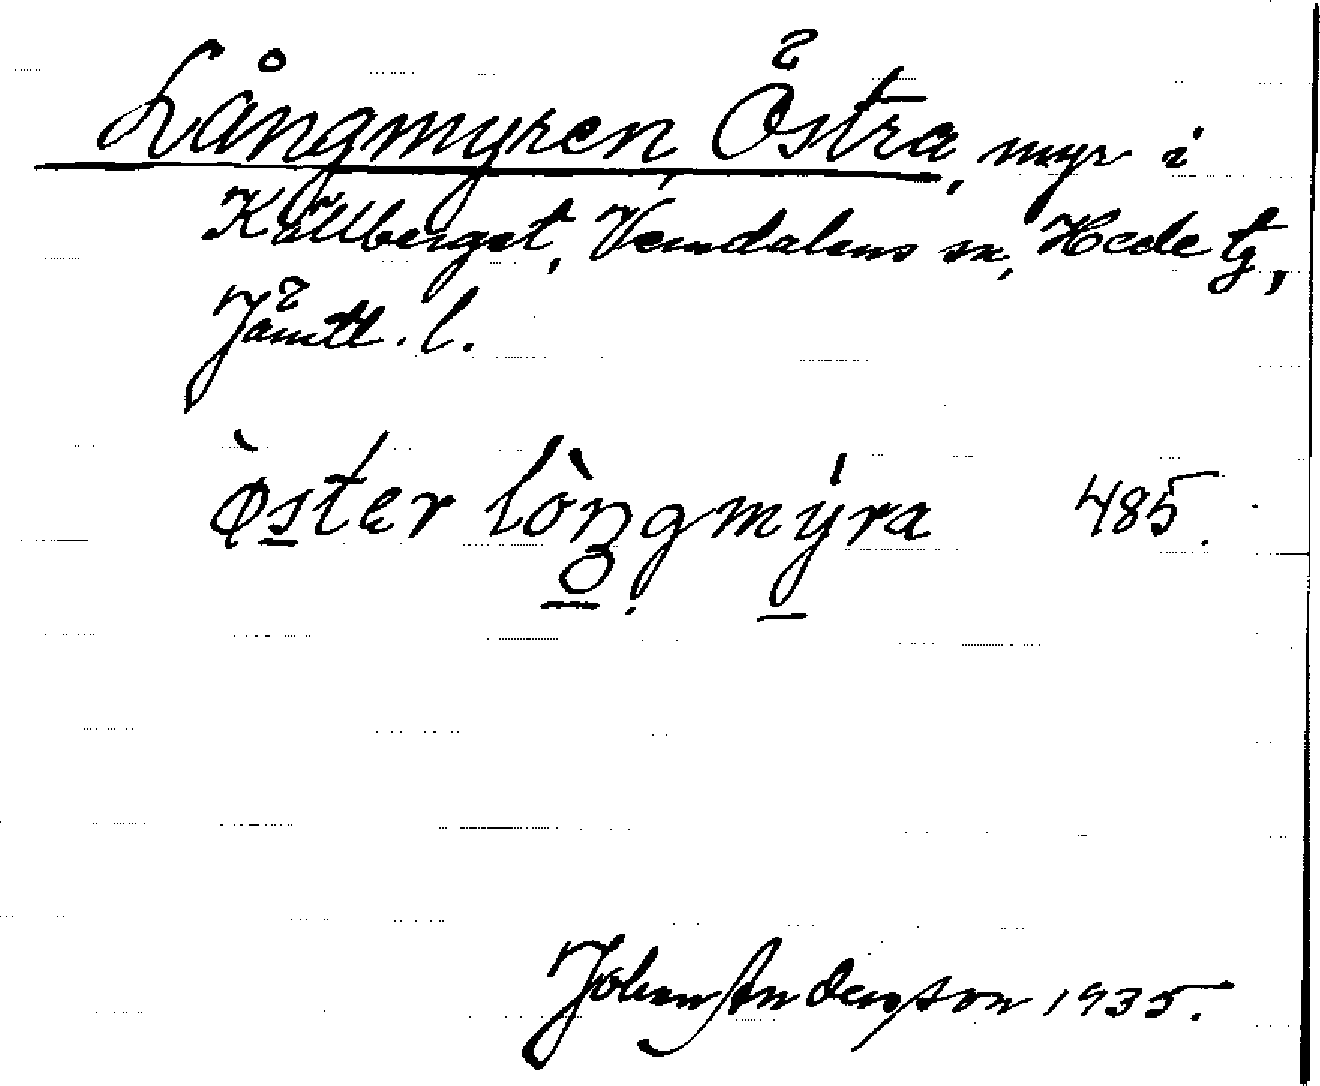 Långmyren, Östra, myr i
Källberget, Vemdalens sn, Hede tg,
Jämtl. l.
ø̀ster lòŋgmýra 485.
Johan Anderson 1935.